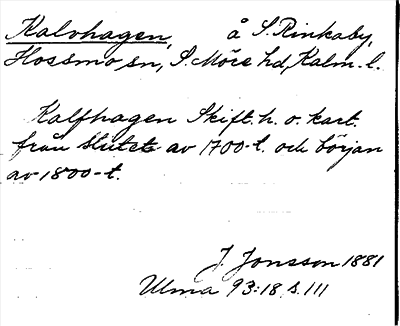 Kalvhagen, å S. Rinkaby,
Hossmo sn, S. Möre hd, Kalm. l.
Kalfhagen Skift. h. o. kart.
från slutet av 1700-t. och början
av 1800-t.
J. Jonsson 1881
Ulma 93:18, s. 111